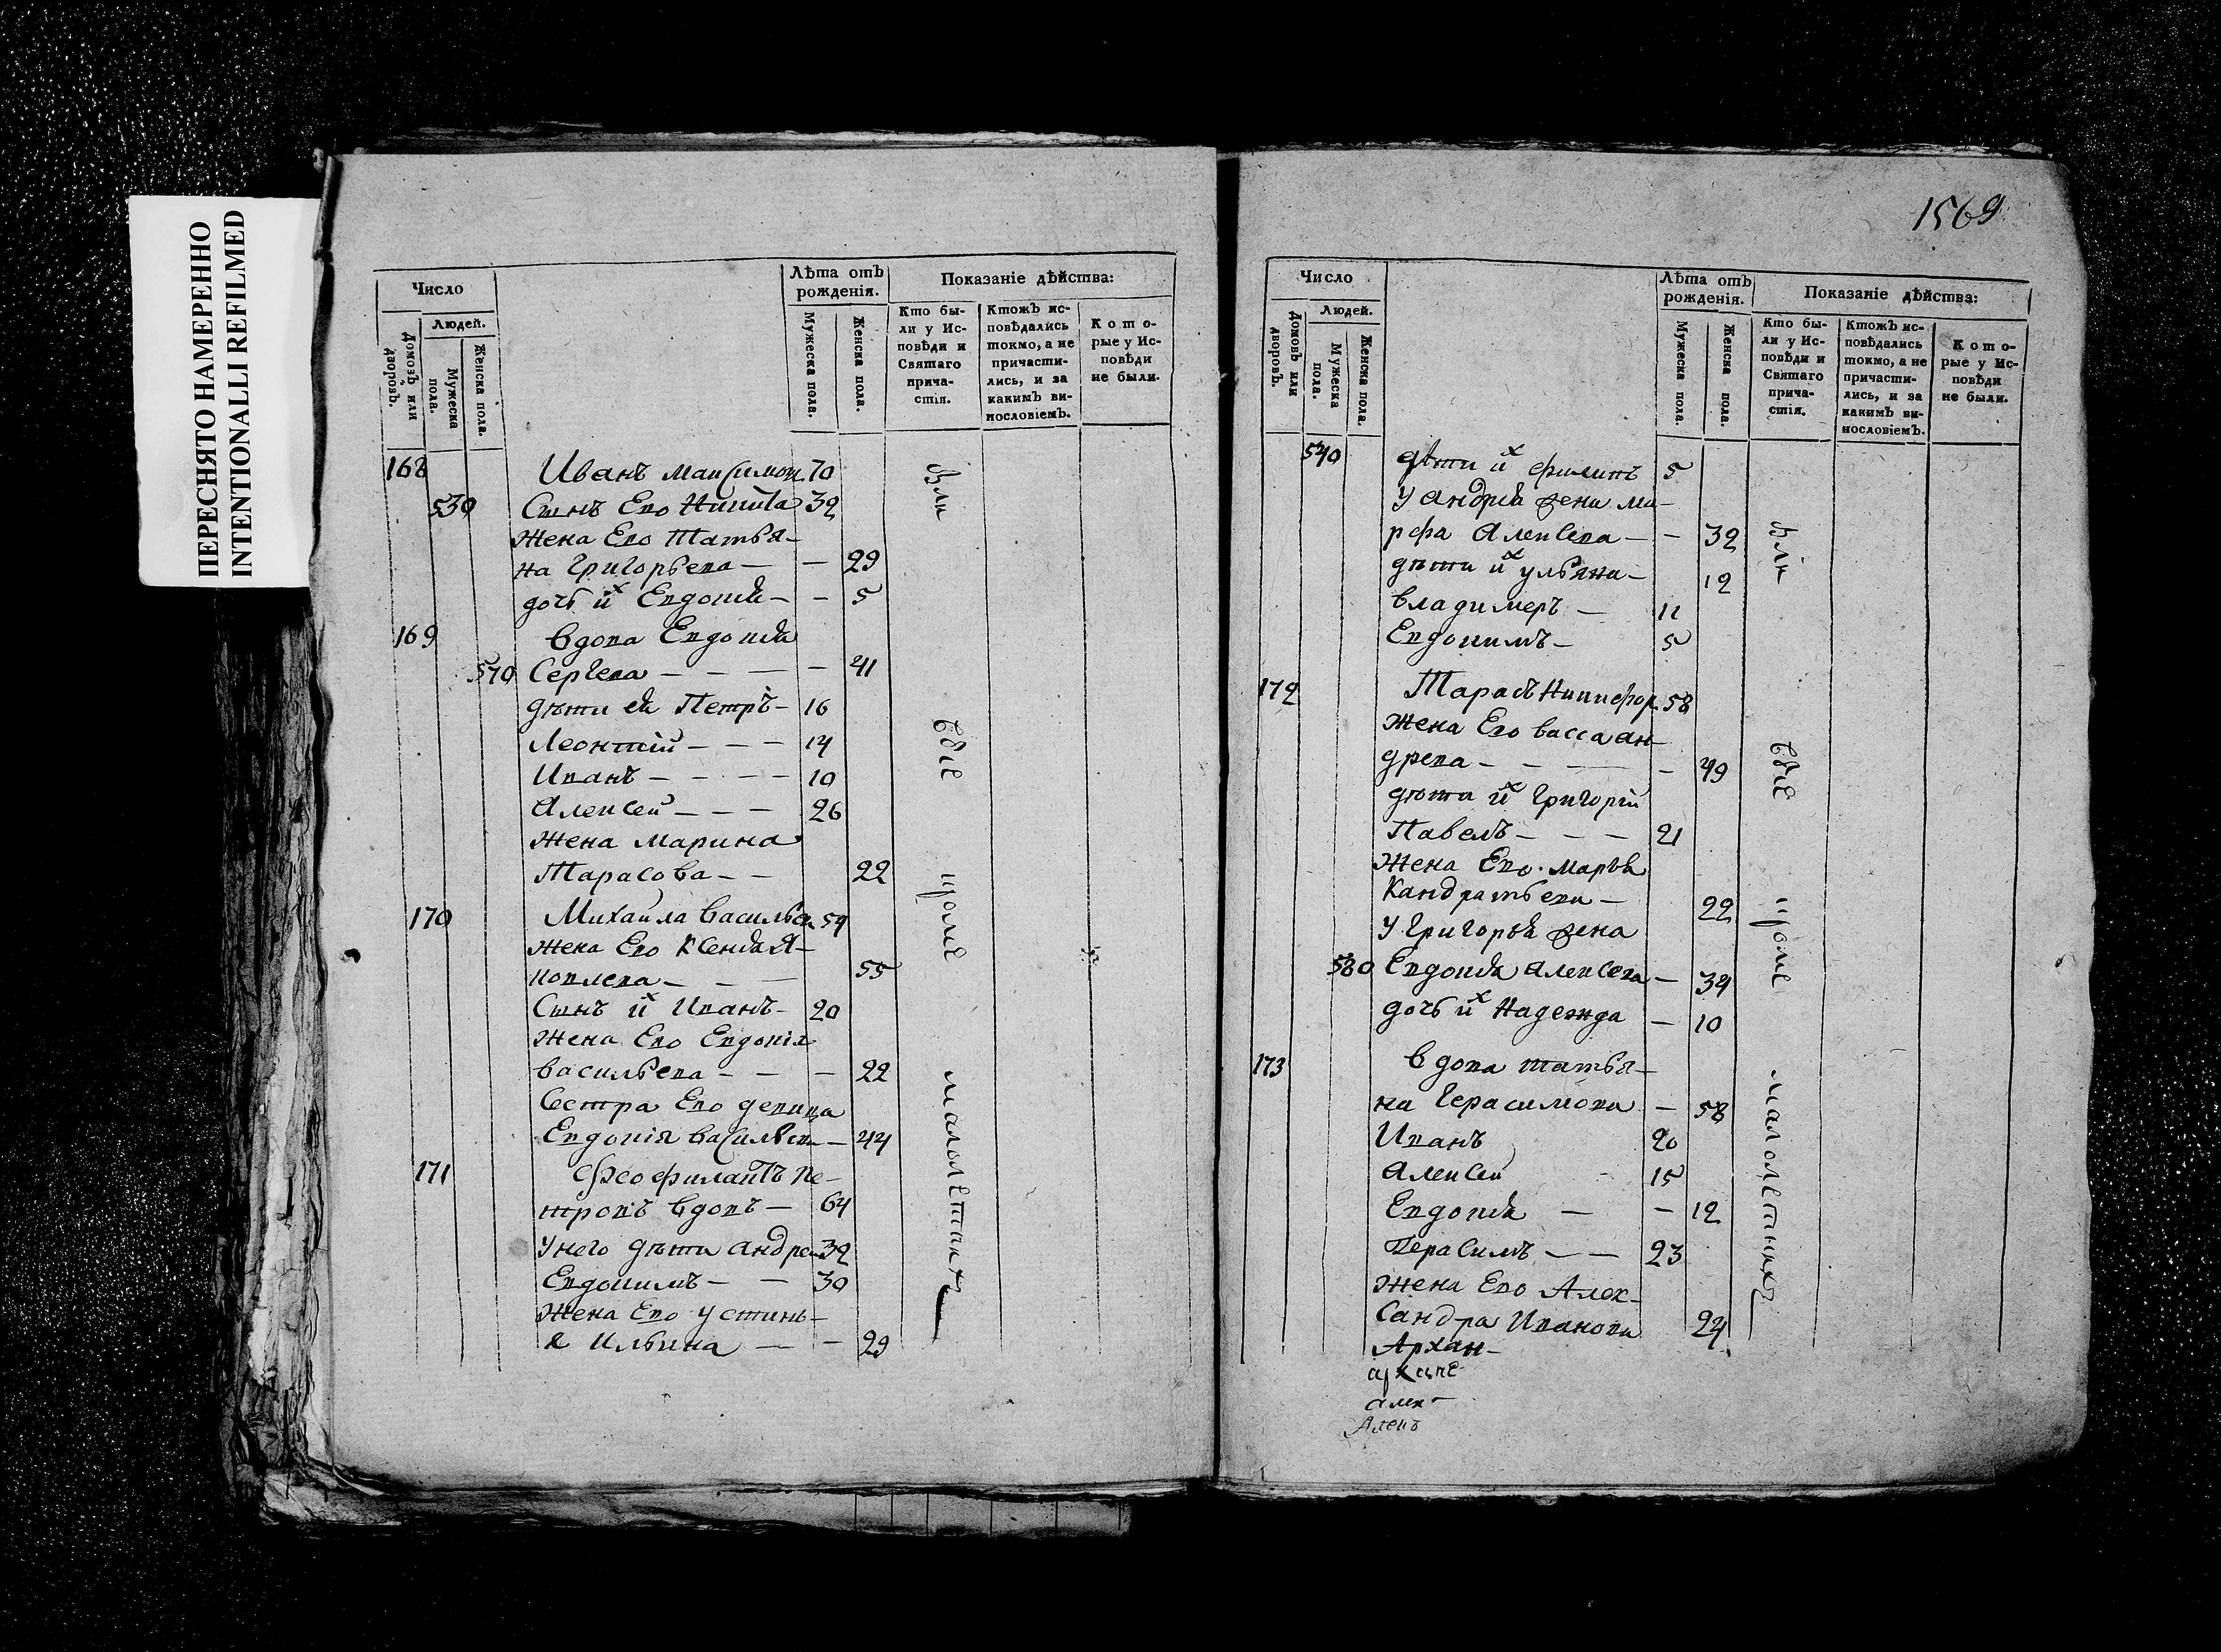 ПЕРЕСНЯТО НАМЕРЕННО
INTENTIONALLI REFILMED
Число
Людей.
Домовъ или дворовъ.
Мужеска пола.
Женска пола.
Лѣта отъ рожденія.
Мужеска пола.
Женска пола.
Показаніе дѣйства:
Кто бы-
ли у Ис-
повѣди и
Святаго
прича-
стія.
Ктожъ ис-
повѣдались
токмо, а не
причасти-
лись, и за
какимъ ви-
нословіемъ.
Кото-
рые у Ис-
повѣди
не были.
168 Иванъ Максимов 70
539 Сынъ Ево Никита 32
Жена Ево Татья-
на Григорьева — — 29
дочь их Евдокия — — 5
169 вдова Евдокия
570 Сергева — — — — 41
дѣти ея Петръ — 16
Леонтій — — — 14
Иванъ — — — — 10
Алексей — — — 26
Жена Марина
Тарасова — — 22
170 Михайла Васильев 59
Жена Ево Ксения Я-
ковлева — — — 55
Сынъ их Иванъ — 20
Жена Ево Евдокія
васильева — — — 22
Сестра Ево девица
Евдокія васильева — 44
171 Феофилактъ Пе-
тровъ вдовъ — 64
У него дѣти андреи 32
Евдокимъ — — 30
Жена Ево устинь-
я Ильина — — 29
были
всѣ
кромѣ
малолѣтных
1569
Число
Людей.
Домовъ или дворовъ.
Мужеска пола.
Женска пола.
Лѣта отъ рожденія.
Мужеска пола.
Женска пола.
Показаніе дѣйства:
Кто бы-
ли у Ис-
повѣди и
Святаго
прича-
стія.
Ктожъ ис-
повѣдались
токмо, а не
причасти-
лись, и за
какимъ ви-
нословіемъ.
Кото-
рые у Ис-
повѣди
не были.
540 дѣти их филипъ 5
У андрия жена ма-
рфа Алексева — — 32
дѣти их ульяна — 12
владимеръ — 11
Евдокимъ — 5
172 Тарасъ Никифор 58
Жена Ево васса ан-
древа — — — — 49
дѣти их Григорій
Павелъ — — — 21
Жена Ево Марья
Кандратьева — 22
У Григорья жена
580 Евдокия алексева — 34
дочь их Надежда — 10
173 вдова татья-
на Герасимова — 58
Иванъ 20
алексей 15
Евдокия — — 12
Герасимъ — — 23
Жена Ево Алек-
сандра Иванова 24
Архан-
архане
алек-
были
всѣ
кромѣ
малолѣтныхъ